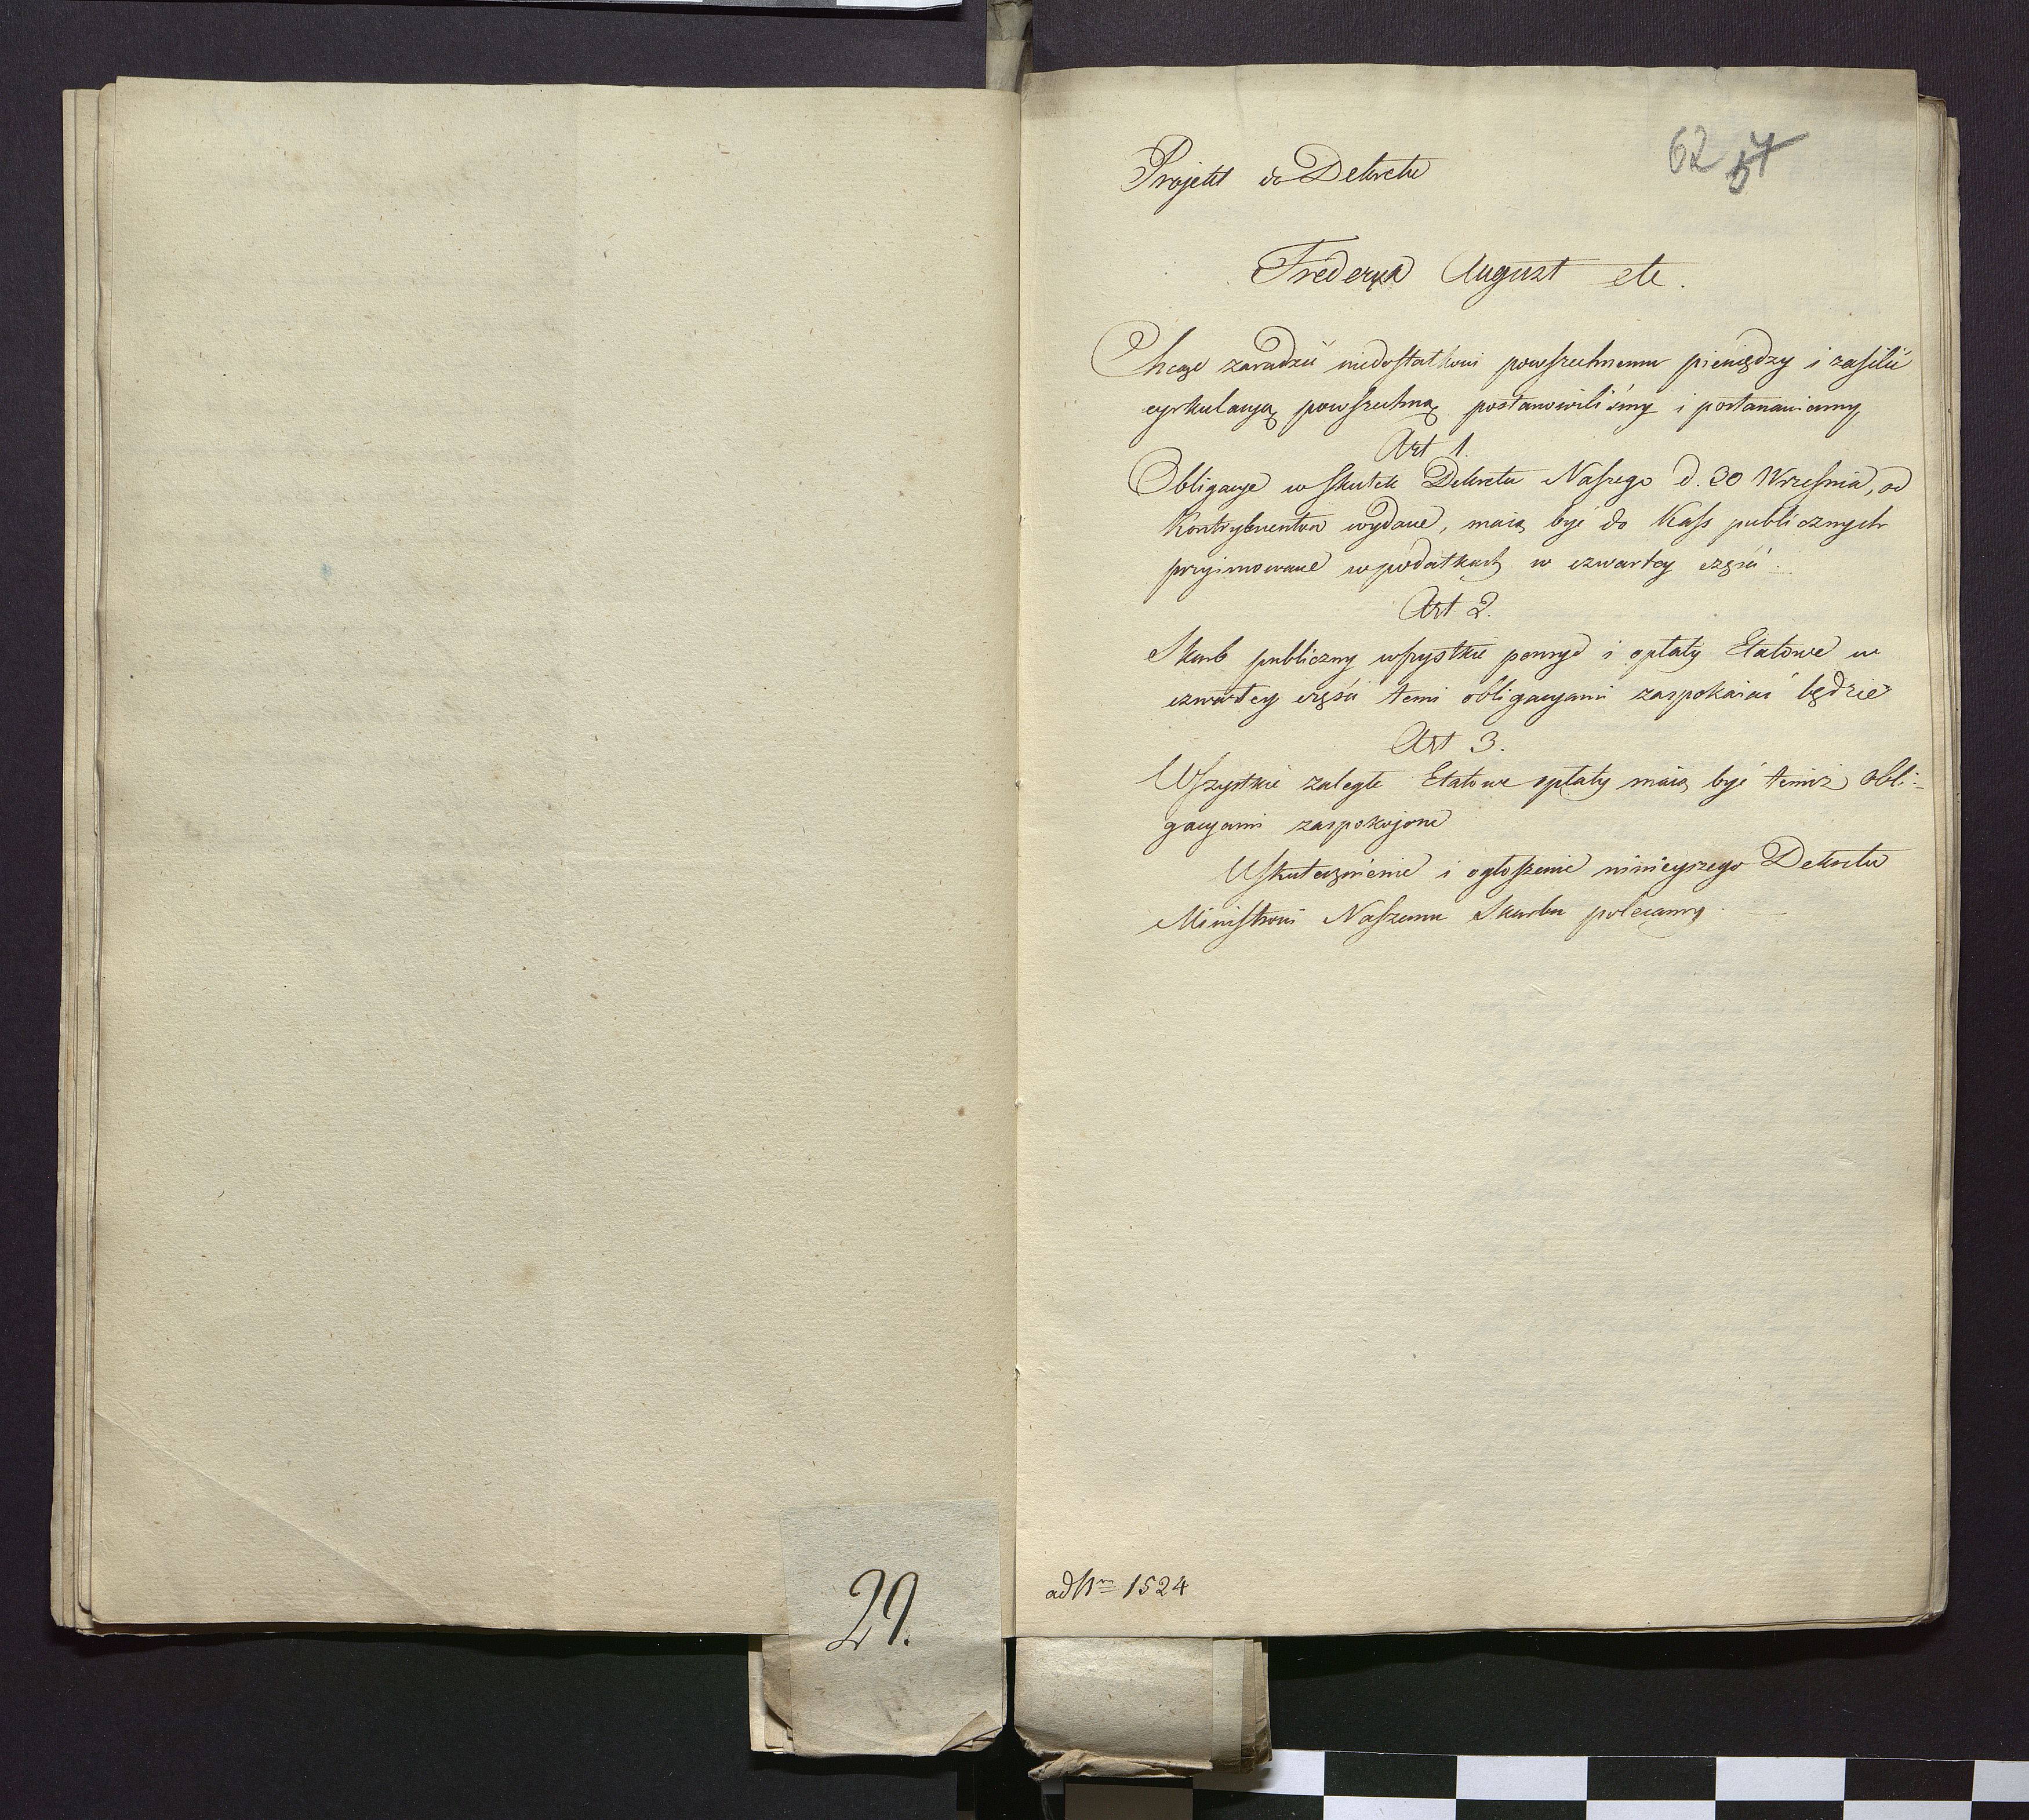 62 57
Projekt do Dekretu
Frederyk August etc.
Chcąc zaradzić niedostatkowi powszechnemu pieniędzy i zasilić
cyrkulacyą powszechną postanowiliśmy i postanawiamy
Art 1.
Obligacye w skutek Dekretu Naszego d. 30 Września, od
Kontrybuentów wydane, maią być do Kass publicznych
przyimowane w podatkach w czwartey części
Art 2.
Skarb publiczny wszystkie pensye i opłaty Etatowe w
czwartey części temi obligacyami zaspokaiać będzie
Art 3.
Wszystkie zaległe Etatowe opłaty maią być temiż obli-
gacyami zaspokojone
Uskutecznienie i ogłoszenie ninieyszego Dekretu
Ministrowi Naszemu Skarbu polecamy.
ad Nrm 1524
29.